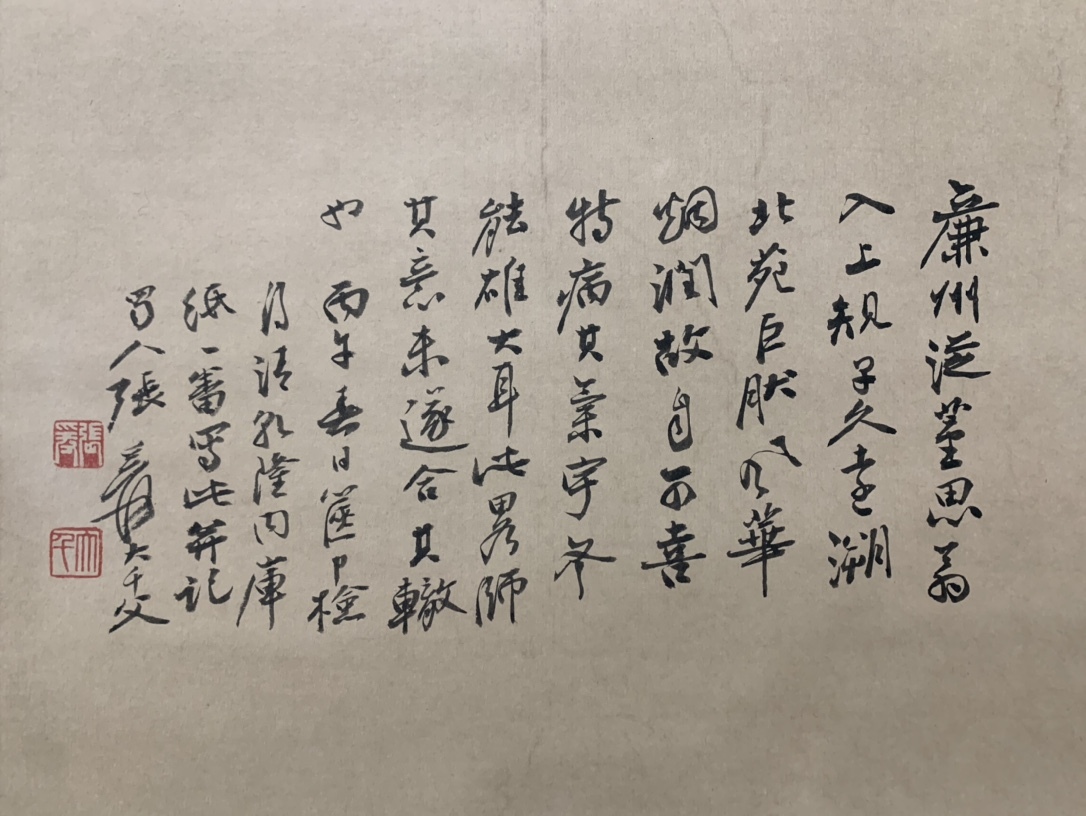 廉州從董思翁
入上規子久遠溯
北苑巨然風華
烟潤故自可喜
特病其氣宇不
能雄大耳此畧師
其意未遂合其轍
也 丙午春日篋中檢
得清乾隆內庫
紙一番寫此并記
蜀人張爰大千父
張爰
大千